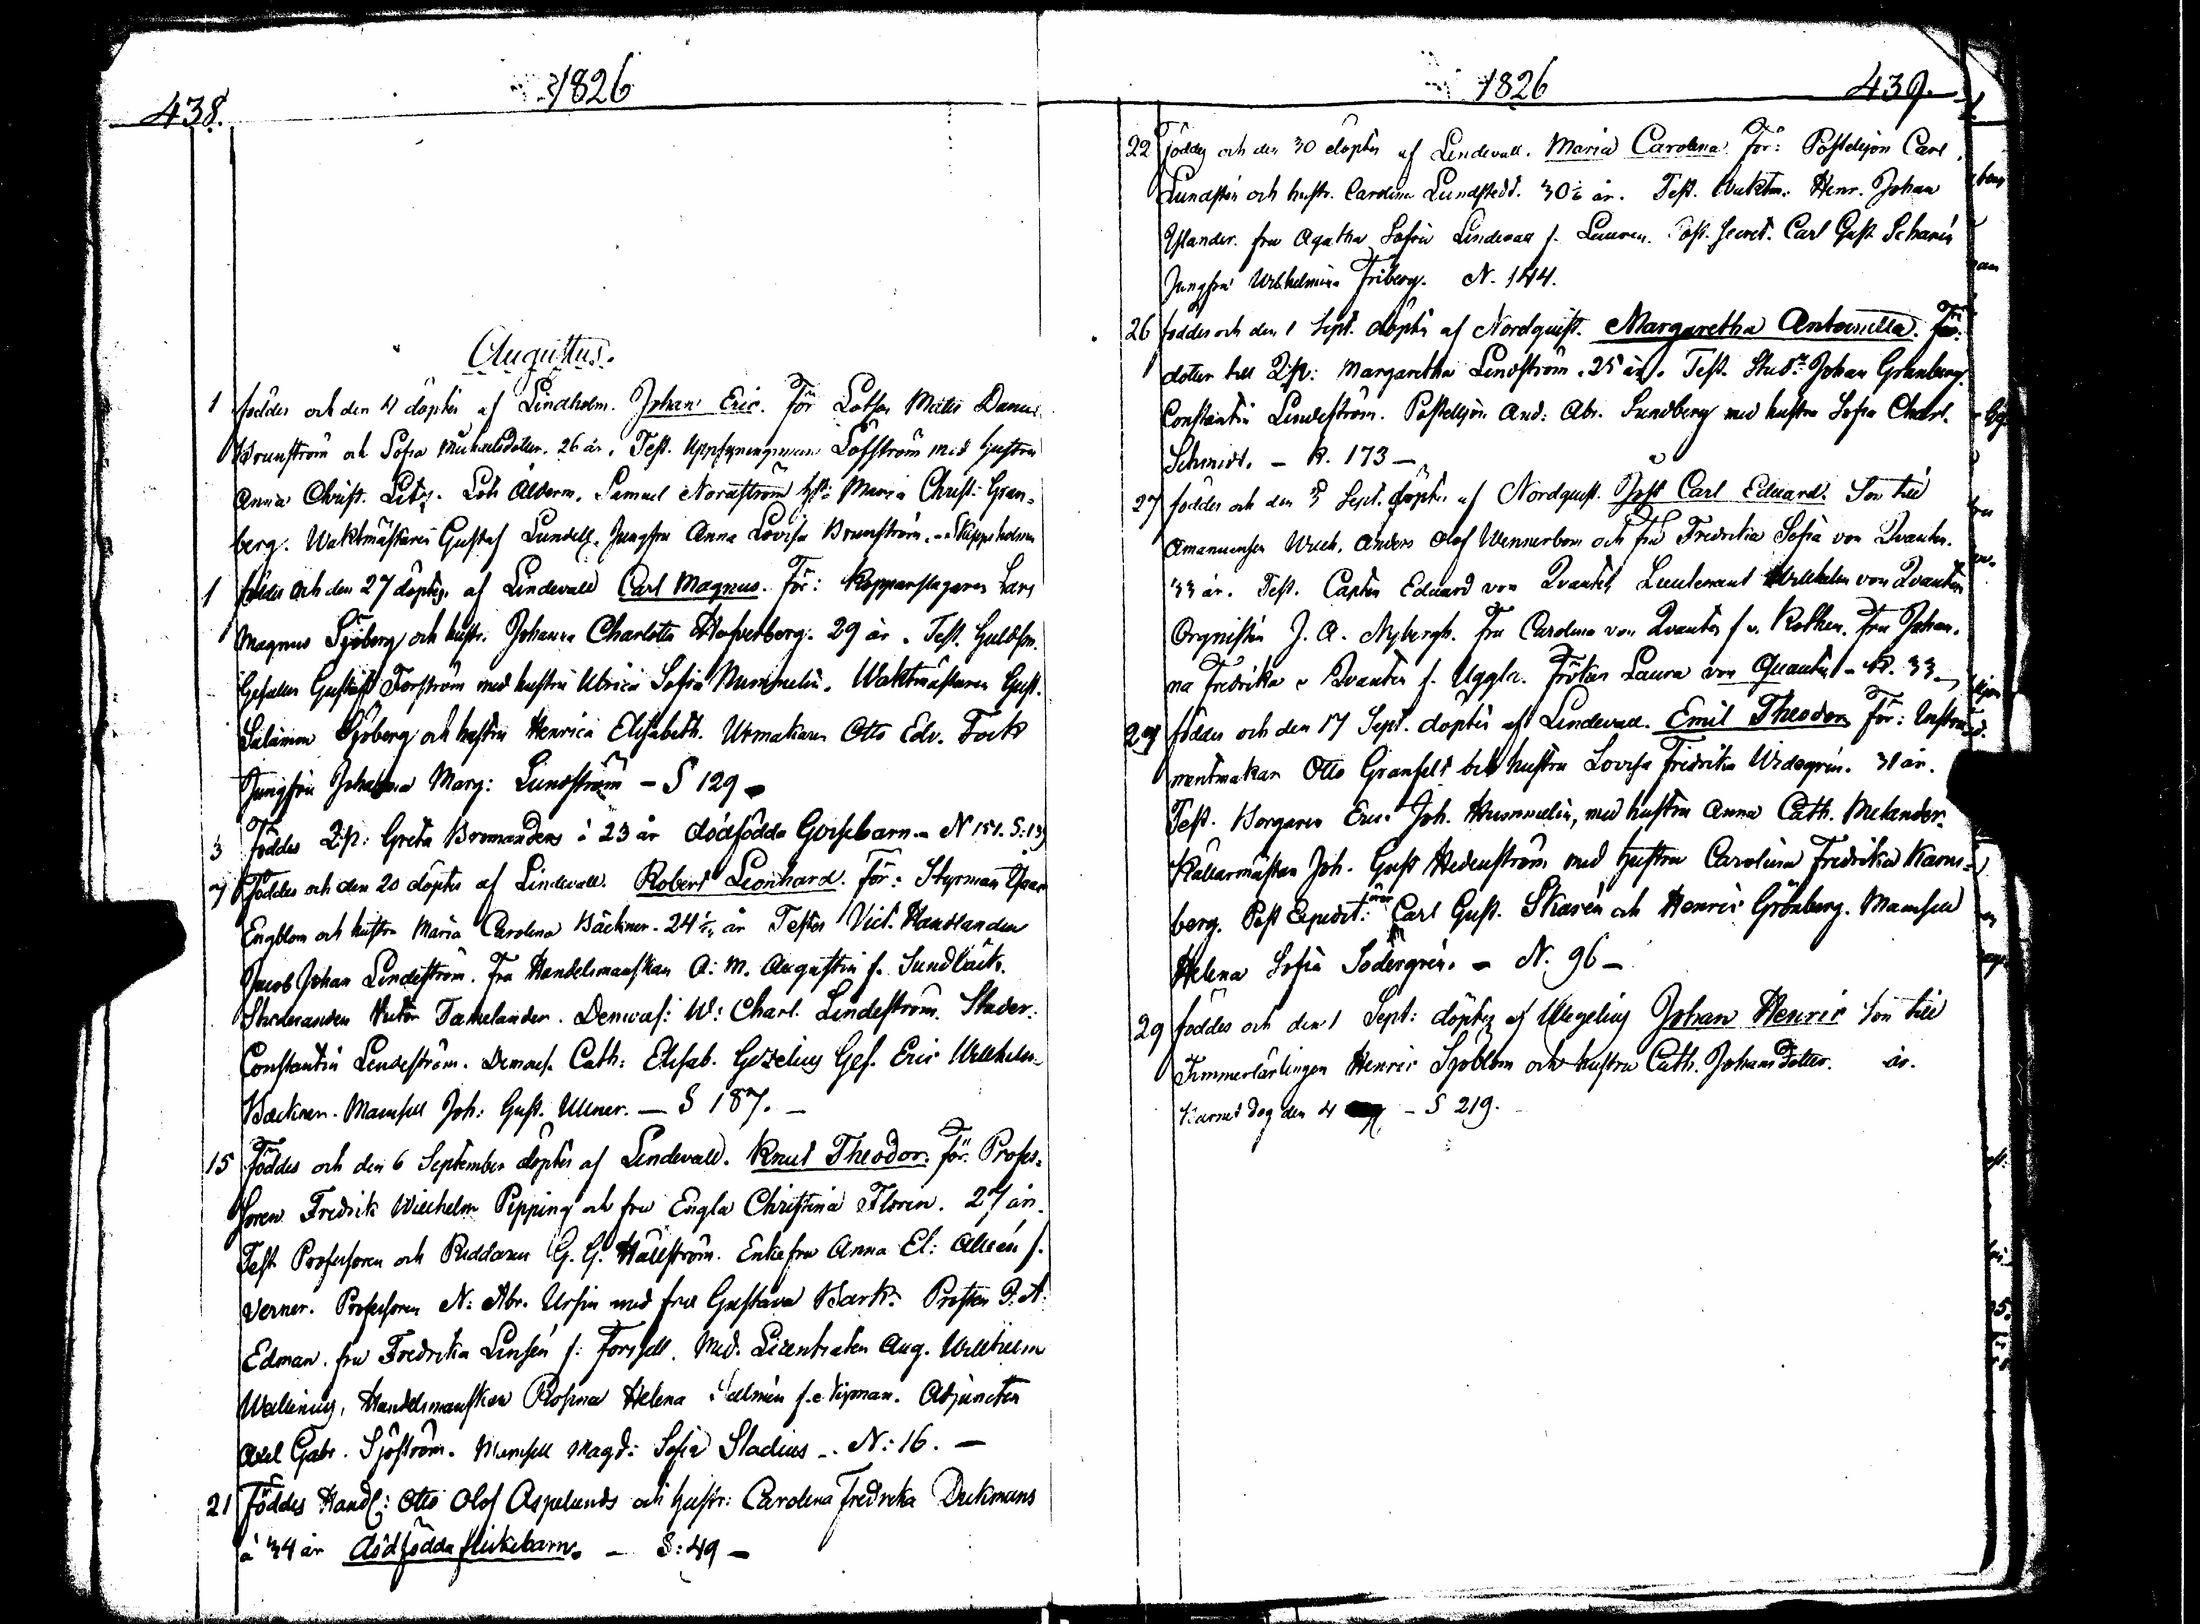 438.
1826
Augustus.
1 föddes och den 4 döptes af Lindholm. Johan Eric. För: Lotsen Matts Daniel
Brunström och Sofia Michelsdotter. 26 år. Test. Uppsyningsman Löfström med hustru
Anna Christ. Lots Ålderm. Samuel Nordström hst: Maria Christ: Gran-
berg. Waktmästaren Gustaf Lundell. Jungfru Anna Lovisa Brunström. Skeppsholmen
1 föddes och den 27 döptes af Lindevall Carl Magnus. För: Kopparslagaren Lars
Magnus Sjöberg och hustr. Johanna Charlotta Hofverberg. 29 år. Test. Guldsm.
Gesällen Gustaf Forström med hustru Ulrica Sofia Nummelin. Waktmästaren Gust.
Salamon Sjöberg och hustru Henrica Elisabeth. Urmakaren Otto Edv. Fock
Jungfru Johanna Marg: Lundström – S 129
3 Föddes Q:p: Greta Bromanders å 23 år dödfödda Gossebarn. – N 151. S: 13
7 Föddes och den 20 döptes af Lindevall. Robert Leonhard. För: Styrman Isaac
Engblom och hustru Maria Carolina Bäckman. 24½ år Testes Vict. Handlanden
Jacob Johan Lindeström. Fru Handelsmanskan A: M. Augustin f. Sundbäck.
Studeranden Victor Tamelander. Demois: W: Charl. Lindeström. Studer:
Constantin Lindeström. Demois. Cath: Elisab. Gezelius Ges. Eric Willhelm
Backman. Mamsell Joh: Gust. Ullner. – S 187. –
15 Föddes och den 6 September döptes af Lindevall. Knut Theodor. För: Profes-
soren Fredrik Willhelm Pipping och fru Engla Christina Florin. 27 år.
Test. Professoren och Riddaren G. G. Hällström. Enkefru Anna El: Alléen f.
Verner. Professoren N: Abr. Ursin med fru Gustava Bark. Prosten P. A.
Edman. fru Fredrika Linsén f: Forsell. Med. Licentiaten Aug. Willhelm
Wallenius, Handelsmanskan Rosina Helena f. Nipman. Adjuncten
Axel Gabr. Sjöström. Mamsell Magd: Sofia Stadius – N: 16. –
21 Föddes Handl: Otto Olof Aspelunds och hustr: Carolina Fredrika Dickmans
à 34 år dödfödda flickebarn. – S: 49 –
1826
439.
22 Föddes och den 30 döptes af Lindevall. Maria Carolina. För: Postiljon Carl
Lundstén och hustr. Carolina Lundstedt. 30½ år. Test. Waktm: Henr. Johan
Ylander. fru Agatha Sofia Lindevall f. Lauren. Post. Secret. Carl Gust. Scharén
Jungfru Wilhelmina Friberg. N. 144.
26 föddes och den 1 Sept. döptes af Nordquist. Margaretha Antoinetta.
dotter till Q:p: Margaretha Lindström. 25 år. Test. Stud: Johan Granberg.
Constantin Lindeström. Postiljon And: Abr. Sundberg med hustru Sofia Charl.
Schmidt. – N. 173 –
27 föddes och den 3 Sept. döptes af Nordquist. Jost Carl Eduard. Son till
Amanuensen Anders Olof Wennerbom och fru Fredrika Sofia von Qvanten.
33 år. Test. Capten Eduard von Qvanten Lieutenant Willhelm von Qvanten
Orgnisten J. A. Nybergh. Fru Carolina von Qvanten f. v. Rothen. Fru Johan-
na Fredrika v Qvanten f. Uggla. Fröken Laura von Quanten – N. 33
27 föddes och den 17 Sept. döptes af Lindevall. Emil Theodor. För: Instru-
mentmakar Otto Granfelt och hustru Lovisa Fredrika Widegrén. 31 år.
Test. Borgaren Eric Joh. Nummelin, med hustru Anna Cath. Melander.
Källarmästar Joh. Gust Hedenström med hustru Carolina Fredrika Karns-
berg. Post Expedit:örer Carl Gust. Skarén och Henric Grönberg. Mamsell
Helena Sofia Södergrén. – N. 96 –
29 föddes och den 1 Sept: döptes af Wegelius Johan Henric Son till
Timmerlärlingen Henric Sjöblom och hustru Cath. Johansdotter. år.
Barnet dog den 4 – S 219.